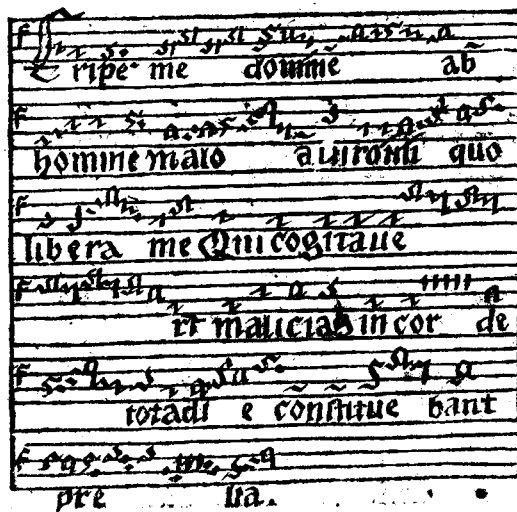 E ripe me domīne ab̄
homine malo ā uiro inī quo
libera me Qui cogitaue
rt malicias in cor de
tota di e cōnstitue bant
pre lia.